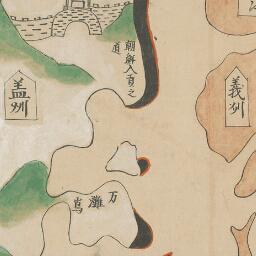 朝鮮入貢之
道
義州
盖州
万灘島